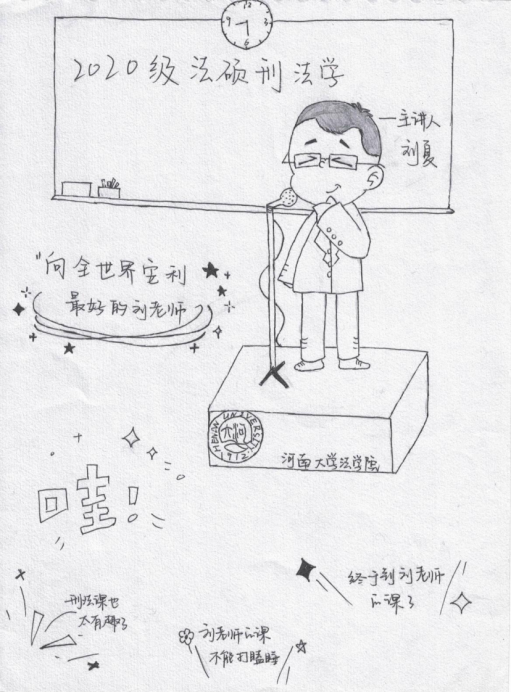 12
9 3
6
2020级法硕刑法学
一主讲人
刘夏
"向全世界安利
最好的刘老师
HENAN UNIVERSITY
1912
河南大学法学院
哇!
终于到刘老师
的课了
刑法课也
太有趣了
刘老师的课
不能打瞌睡